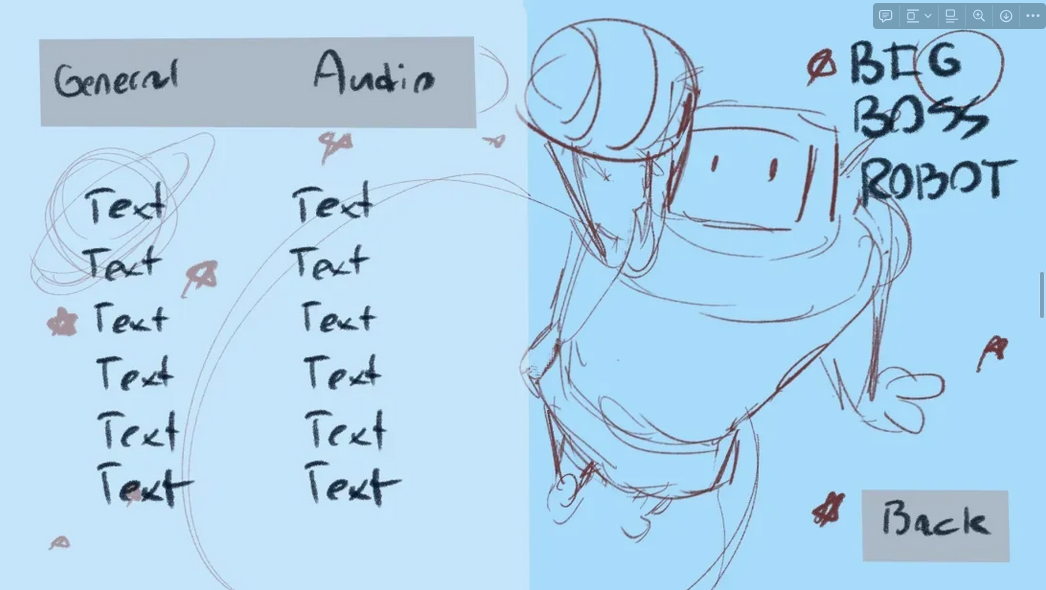 General Audio
Text Text
Text Text
Text Text
Text Text
Text Text
Text Text
BIG
BOSS
ROBOT
Back